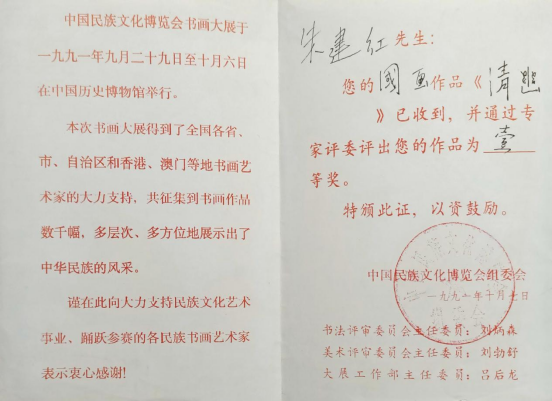 中国民族文化博览会书画大展于
一九九一年九月二十九日至十月六日
在中国历史博物馆举行。
本次书画大展得到了全国各省、
市、自治区和香港、澳门等地书画艺
术家的大力支持，共征集到书画作品
数千幅，多层次、多方位地展示出了
中华民族的风采。
谨在此向大力支持民族文化艺术
事业、踊跃参赛的各民族书画艺术家
表示衷心感谢!
朱建红先生：
您的國画作品《清幽
》已收到，并通过专
家评委评出您的作品为壹
等奖。
特颁此证，以资鼓励。
中国民族文化博览会组委会
一九九一年十月七日
书法评审委员会主任委员：刘炳森
美术评审委员会主任委员：刘勃舒
大展工作部主任委员：吕后龙